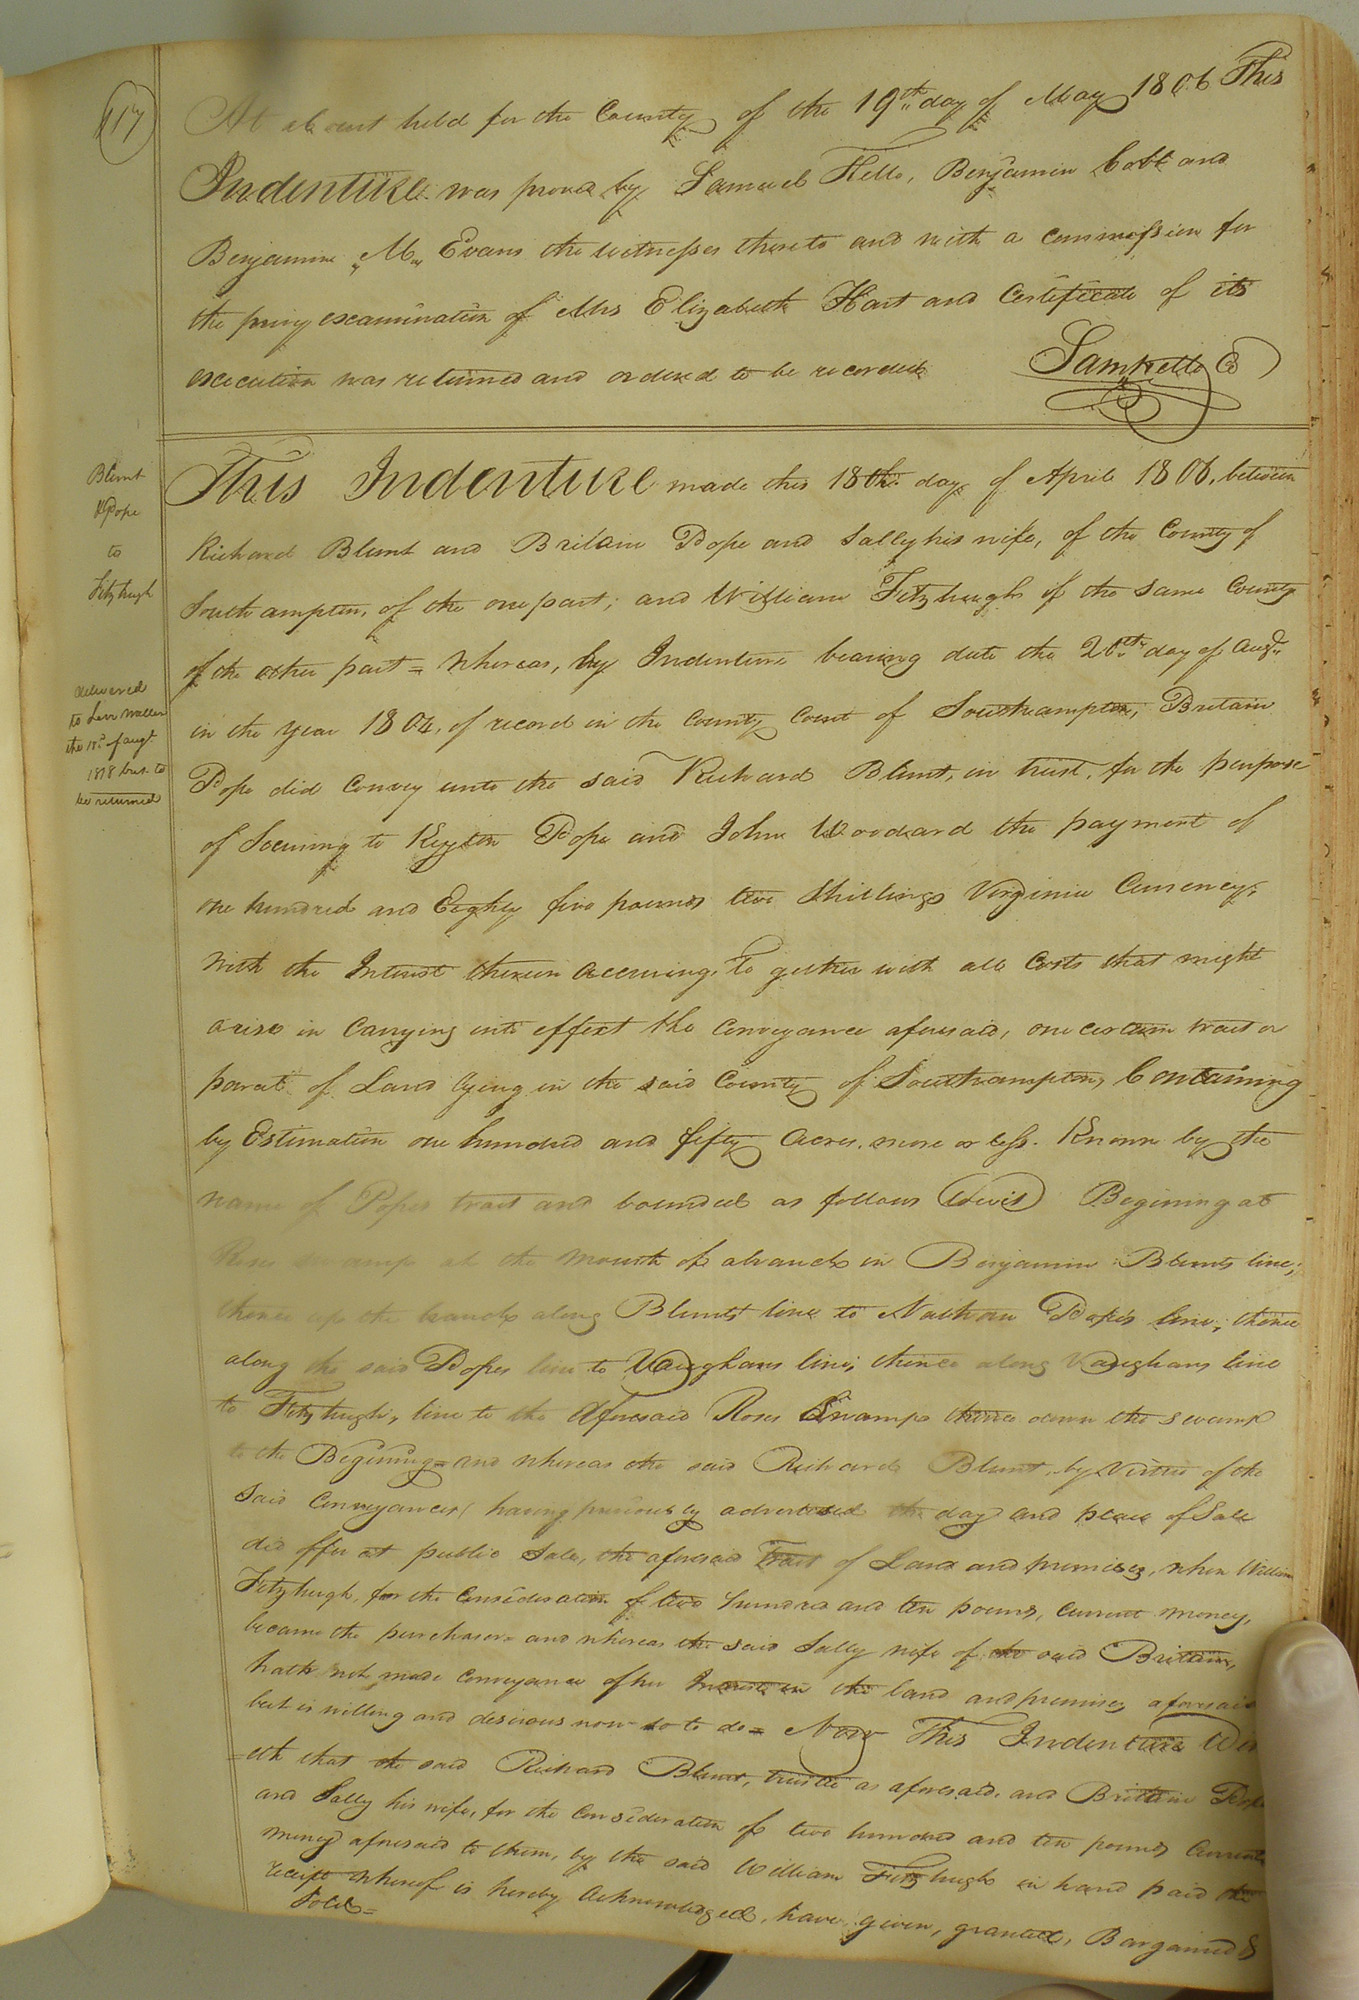 117
At a Court held for the County of the 19th day of May 1806 This
Indenture was proved by Samuel Kello, Benjamin Cobb and
Benjamin M. Evans the witnesses thereto and with a commission for
the privy examination of Mrs Elizabeth Hart and Certificate of its
execution was returned and ordered to be recorded
Saml Kello C
Blunt
& Pope
to
Fitzhugh
delivered
to Levi Waller
the 18th of augt
1818 but to
be returned
This Indenture made this 18th day of April 1806, between
Richard Blunt and Britain Pope and Sally his wife, of the County of
Southampton, of the one part; and William Fitzhugh of the same County
of the other part = Whereas, by Indenture bearing date the 20th day of Augt
in the year 1804, of record in the County Court of Southampton, Britain
Pope did Convey unto the said Richard Blunt, in trust, for the purpose
of Securing to Pope and John Woodard the payment of
one hundred and Eighty five pounds two Shillings Virginia Currency,
With the Interest thereon accruing, To gether with all Costs that might
arise in Carrying into effect the Conveyance aforesaid, one certain tract or
parcel of Land lying in the said County of Southampton, Containing
by Estimation one hundred and fifty Acres, more or less. Known by the
name of Popes tract and bounded as follows (towit) Begining at
Roses swamp at the mouth of a branch in Benjamin Blunts line;
thence up the branch along Blunts line to Nathan Pope's line; thence
along the said Popes line to Vaughans line; thence along Vaughans line
to Fitzhugh's line to the aforesaid Roses Swamp thence down the swamp
to the Begining = and whereas the said Richard Blunt, by Virtue of the
said Conveyance, (having previously advertised the day and place of Sale
did offer at public Sale, the aforesaid Tract of Land and premises, when William
Fitzhugh, for the Consideration of two hundred and ten pounds, Current money,
became the purchaser = and whereas the said Sally wife of the said Brittain,
hath not made Conveyance of her Interest in the land and premises aforesaid
but is willing and desirous now so to do = Now This Indenture Wit
=eth that the said Richard Blunt, trustee as aforesaid, and Brittain Pope
and Sally his wife, for the Consideration of two hundred and ten pounds Current
money aforesaid to them, by the said William Fitzhugh in hand paid the
receipt whereof is hereby Acknowledged, have given, granted, Bargained &
Sold=